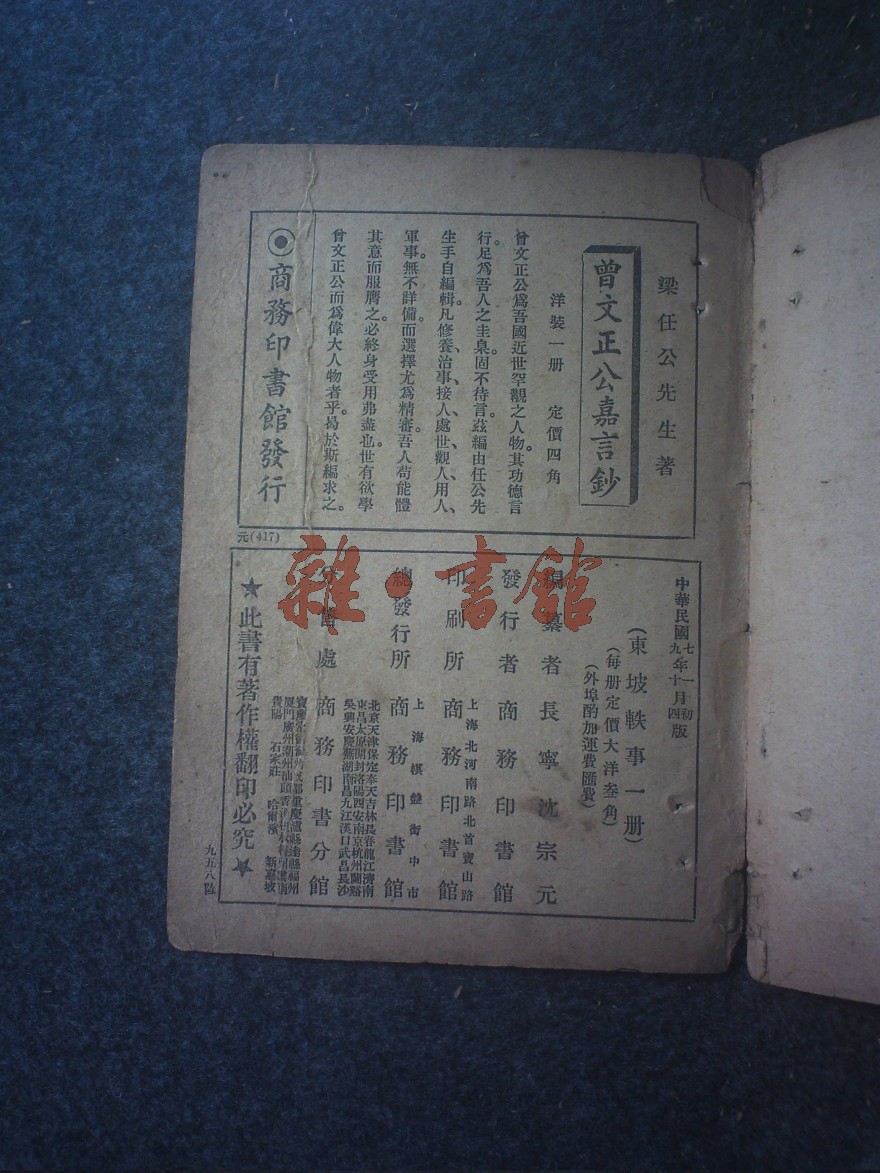 梁任公先生著
曾文正公嘉言鈔
洋裝一册 定價四角
曾文正公爲吾國近世罕覯之人物。其功德言
行。足爲吾人之圭臬。固不待言。茲編由任公先
生手自編輯。凡修養、治事、接人、處世、觀人、用人、
軍事。無不詳備。而選擇尤爲精審。吾人苟能體
其意而服膺之。必終身受用弗盡也。世有欲學
曾文正公而爲偉大人物者乎。曷於斯編求之。
商務印書館發行
元(417)
中華民國七年一月初版
九年十月四版
(東坡軼事一册)
(每册定價大洋叁角)
(外埠酌加運費匯費)
編纂者 長寧沈宗元
發行者 商務印書館
上海北河南路北首寶山路
印刷所 商務印書館
上海棋盤街中市
總發行所 商務印書館
分售處 商務印書分館
北京天津保定奉天吉林長春龍江濟南
東昌太原開封洛陽西安南京杭州蘭谿
吳興安慶蕪湖南昌九江漢口武昌長沙
重慶瀘縣 福州
廈門廣州潮州汕頭香
貴陽 石家莊 哈爾濱 新嘉坡
★此書有著作權翻印必究★
九五八陸
雜·書館